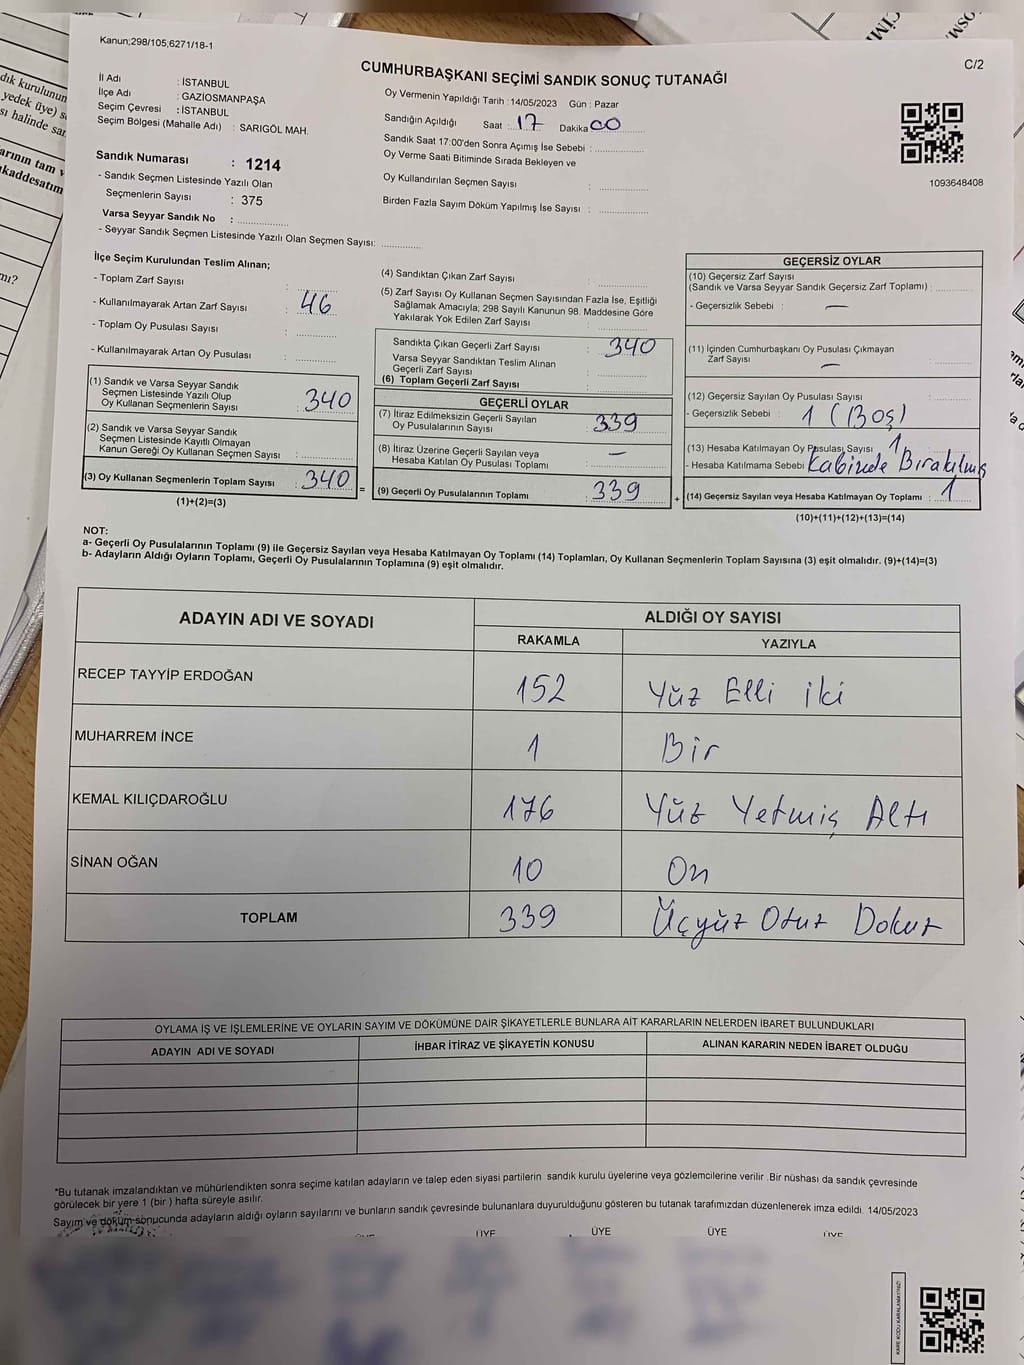 Kanun;298/105;6271/18-1
C/2
CUMHURBAŞKANI SEÇİMİ SANDIK SONUÇ TUTANAĞI
İl Adı : İSTANBUL
İlçe Adı : GAZİOSMANPAŞA
Seçim Çevresi : İSTANBUL
Seçim Bölgesi (Mahalle Adı) : SARIGÖL MAH.
Sandık Numarası : 1214
- Sandık Seçmen Listesinde Yazılı Olan
Seçmenlerin Sayısı : 375
Varsa Seyyar Sandık No :
- Seyyar Sandık Seçmen Listesinde Yazılı Olan Seçmen Sayısı:
Oy Vermenin Yapıldığı Tarih : 14/05/2023 Gün : Pazar
Sandığın Açıldığı Saat : 17 Dakika 00
Sandık Saat 17:00'den Sonra Açımış İse Sebebi :
Oy Verme Saati Bitiminde Sırada Bekleyen ve
Oy Kullandırılan Seçmen Sayısı :
Birden Fazla Sayım Döküm Yapılmış İse Sayısı :
1093648408
İlçe Seçim Kurulundan Teslim Alınan;
- Toplam Zarf Sayısı :
- Kullanılmayarak Artan Zarf Sayısı : 46
- Toplam Oy Pusulası Sayısı :
- Kullanılmayarak Artan Oy Pusulası :
(1) Sandık ve Varsa Seyyar Sandık
Seçmen Listesinde Yazılı Olup
Oy Kullanan Seçmenlerin Sayısı : 340
(2) Sandık ve Varsa Seyyar Sandık
Seçmen Listesinde Kayıtlı Olmayan
Kanun Gereği Oy Kullanan Seçmen Sayısı :
(3) Oy Kullanan Seçmenlerin Toplam Sayısı : 340
(1)+(2)=(3)
=
(4) Sandıktan Çıkan Zarf Sayısı :
(5) Zarf Sayısı Oy Kullanan Seçmen Sayısından Fazla İse, Eşitliği
Sağlamak Amacıyla; 298 Sayılı Kanunun 98. Maddesine Göre
Yakılarak Yok Edilen Zarf Sayısı :
Sandıkta Çıkan Geçerli Zarf Sayısı : 340
Varsa Seyyar Sandıktan Teslim Alınan
Geçerli Zarf Sayısı :
(6) Toplam Geçerli Zarf Sayısı :
GEÇERLİ OYLAR
(7) İtiraz Edilmeksizin Geçerli Sayılan
Oy Pusulalarının Sayısı : 339
(8) İtiraz Üzerine Geçerli Sayılan veya
Hesaba Katılan Oy Pusulası Toplamı : —
(9) Geçerli Oy Pusulalarının Toplamı : 339
+
GEÇERSİZ OYLAR
(10) Geçersiz Zarf Sayısı
(Sandık ve Varsa Seyyar Sandık Geçersiz Zarf Toplamı) :
- Geçersizlik Sebebi : —
(11) İçinden Cumhurbaşkanı Oy Pusulası Çıkmayan
Zarf Sayısı : —
(12) Geçersiz Sayılan Oy Pusulası Sayısı :
- Geçersizlik Sebebi : 1 (Boş)
(13) Hesaba Katılmayan Oy Pusulası Sayısı : 1
- Hesaba Katılmama Sebebi : Kabinde Bırakılmış
(14) Geçersiz Sayılan veya Hesaba Katılmayan Oy Toplamı : 1
(10)+(11)+(12)+(13)=(14)
NOT:
a- Geçerli Oy Pusulalarının Toplamı (9) ile Geçersiz Sayılan veya Hesaba Katılmayan Oy Toplamı (14) Toplamları, Oy Kullanan Seçmenlerin Toplam Sayısına (3) eşit olmalıdır. (9)+(14)=(3)
b- Adayların Aldığı Oyların Toplamı, Geçerli Oy Pusulalarının Toplamına (9) eşit olmalıdır.
ADAYIN ADI VE SOYADI ALDIĞI OY SAYISI
RAKAMLA YAZIYLA
RECEP TAYYİP ERDOĞAN 152 Yüz Elli iki
MUHARREM İNCE 1 Bir
KEMAL KILIÇDAROĞLU 176 Yüz Yetmiş Altı
SİNAN OĞAN 10 On
TOPLAM 339 Üçyüz Otuz Dokuz
OYLAMA İŞ VE İŞLEMLERİNE VE OYLARIN SAYIM VE DÖKÜMÜNE DAİR ŞİKAYETLERLE BUNLARA AİT KARARLARIN NELERDEN İBARET BULUNDUKLARI
ADAYIN ADI VE SOYADI İHBAR İTİRAZ VE ŞİKAYETİN KONUSU ALINAN KARARIN NEDEN İBARET OLDUĞU
*Bu tutanak imzalandıktan ve mühürlendikten sonra seçime katılan adayların ve talep eden siyasi partilerin sandık kurulu üyelerine veya gözlemcilerine verilir .Bir nüshası da sandık çevresinde
görülecek bir yere 1 (bir ) hafta süreyle asılır.
Sayım ve döküm sonucunda adayların aldığı oyların sayılarını ve bunların sandık çevresinde bulunanlara duyurulduğunu gösteren bu tutanak tarafımızdan düzenlenerek imza edildi. 14/05/2023
ÜYE ÜYE ÜYE ÜYE ÜYE
KARE KODU KARALAMAYINIZ!